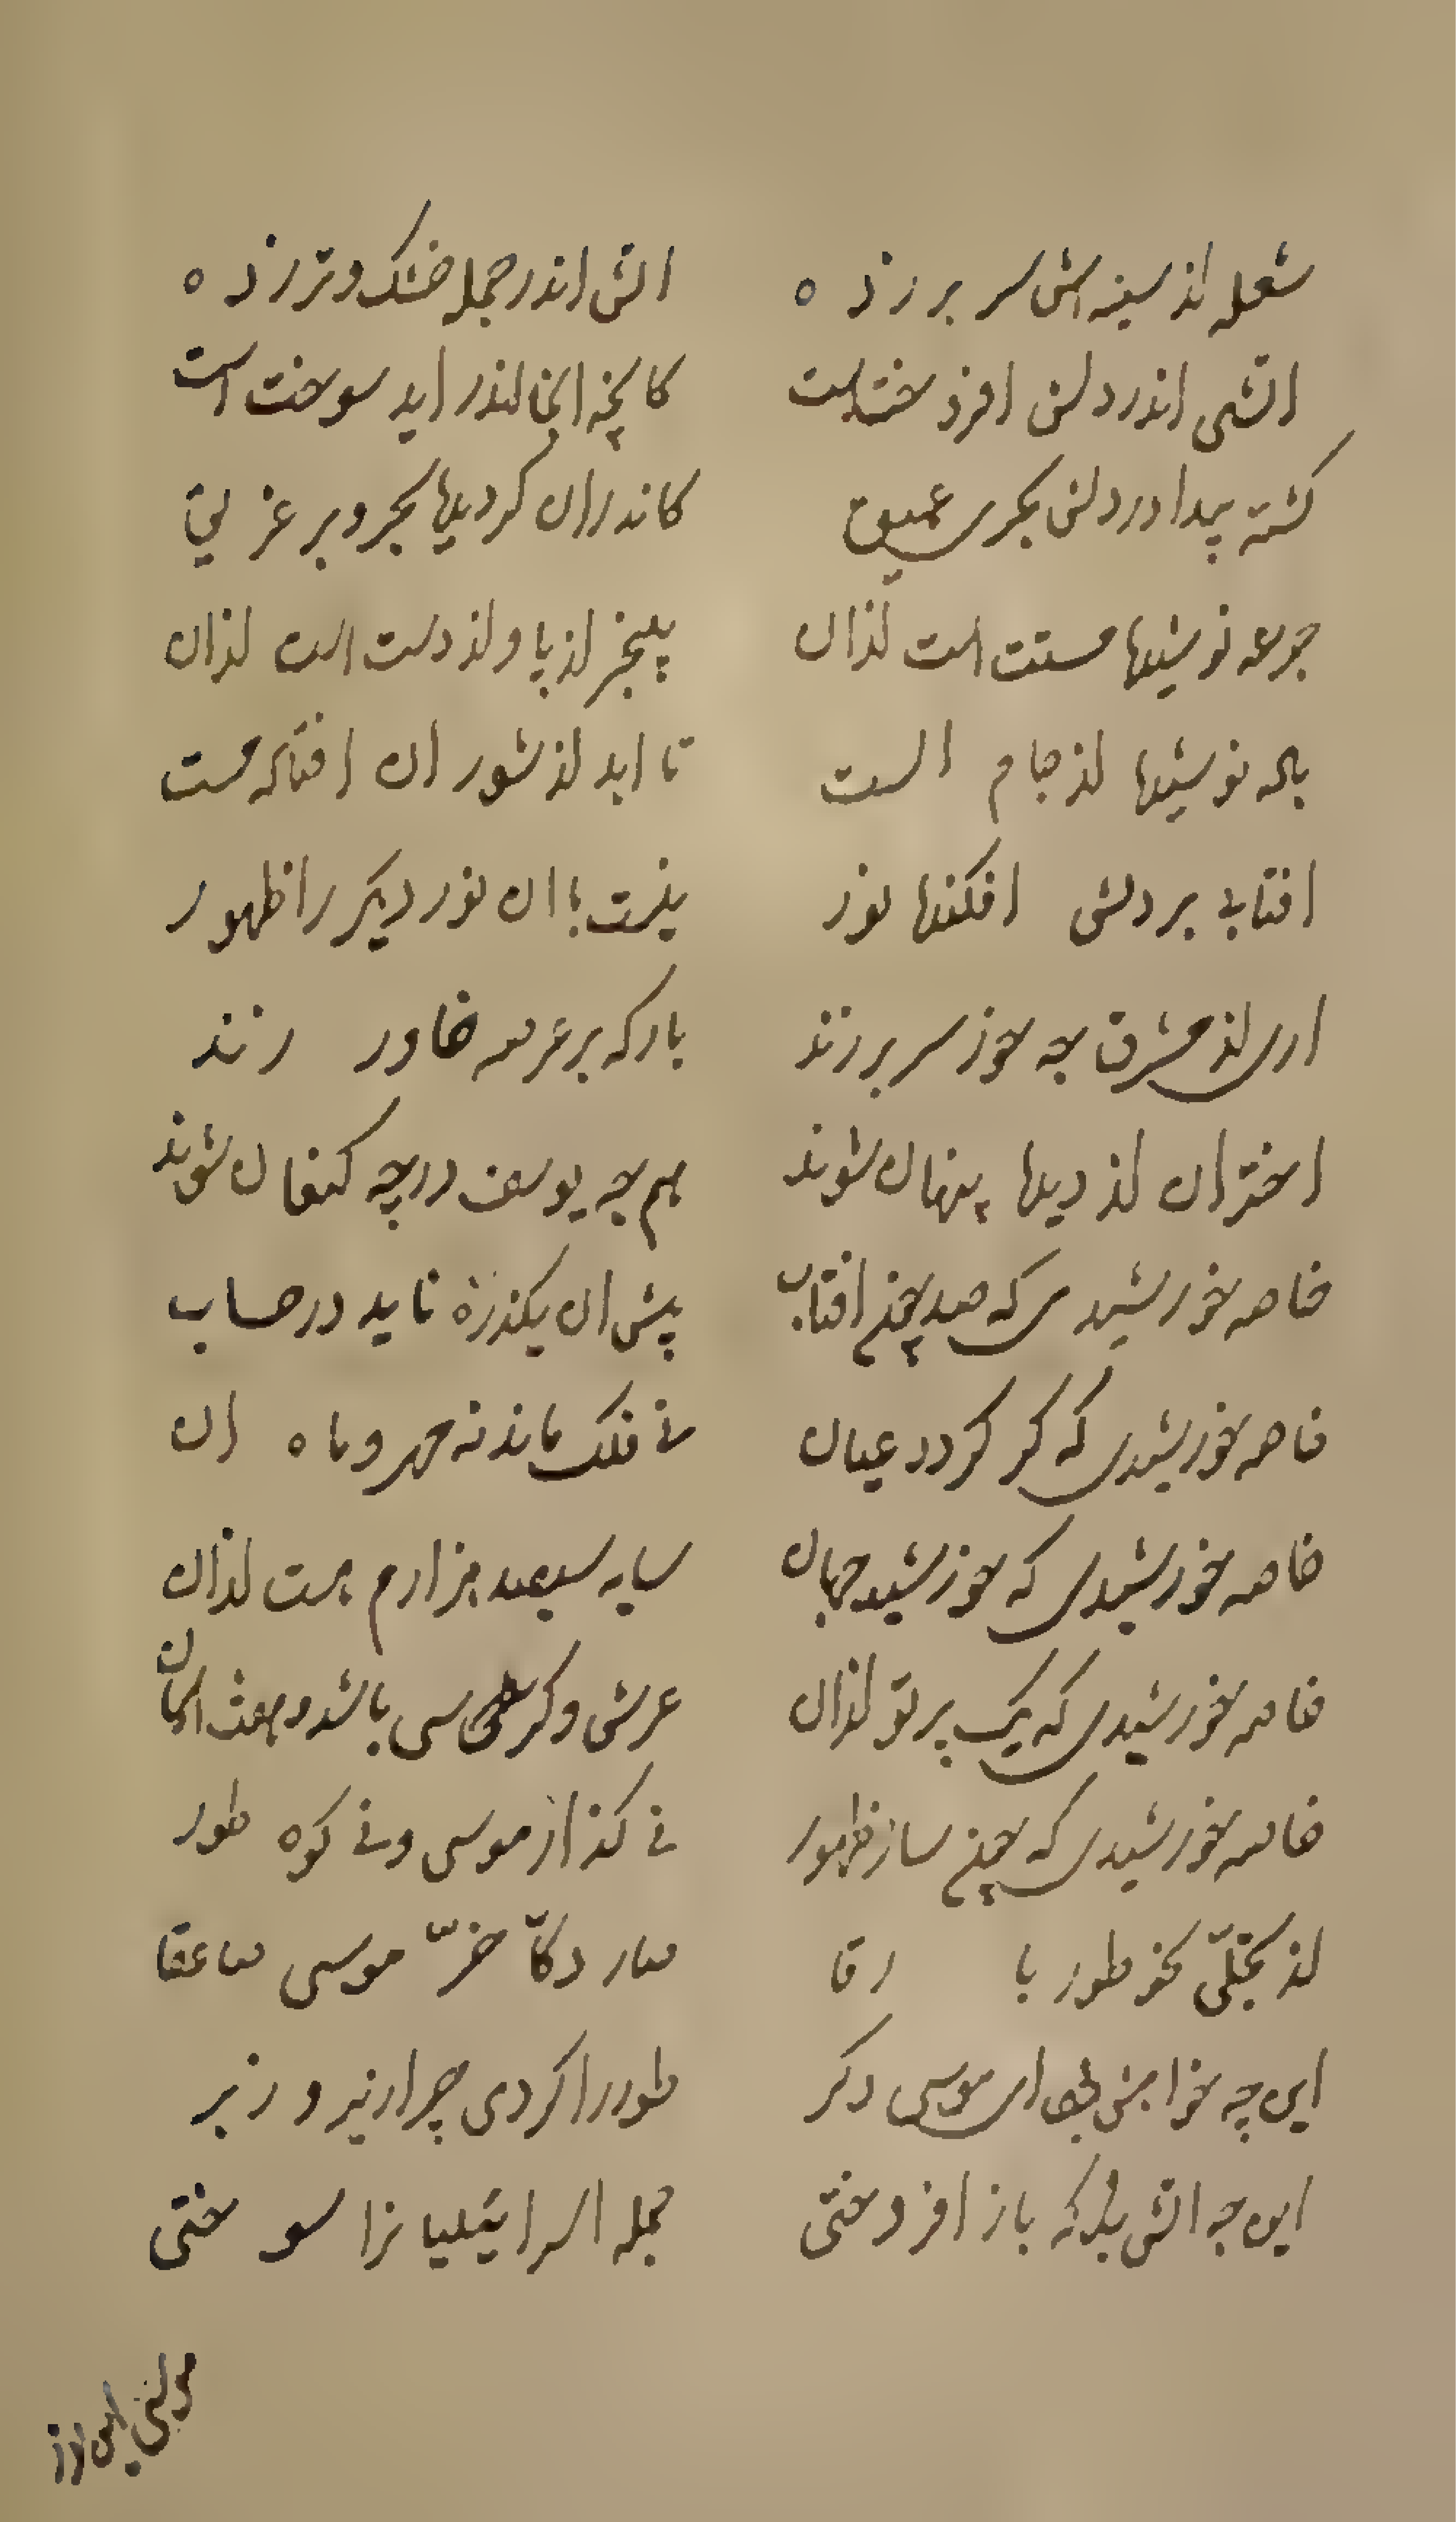 شعله از سینه اش سر بر زده اتش اندر جمله خشک و تر زده
اتشی اندر دلش افروخته است کانچه انجا اندر اید سوخته است
کشته پیدا در دلش بحری عمیق کاندران کردیده بحر و بر غریق
جرعه نوشیده مست است ازان بیخبر از پا و از دست است ازان
باده نوشیده از جام الست تا ابد از شور ان افتاده مست
افتابی بر دلش افکنده نور نیست با ان نور دیکر را ظهور
اری از مشرق چه خور سر بر زند بارکه بر عرصه خاور زند
اختران از دیده پنهان شوند هم چه یوسف در چه کنعان شوند
خاصه خورشیدی که صد چندین افتاب پیش ان یکذره ناید در حساب
خاصه خورشیدی که کر کردد عیان نی فلک ماند نه مهر و ماه ان
خاصه خورشیدی که خورشید جهان سایه سیصد هزارم هست ازان
خاصه خورشیدی که یک پرتو ازان عرش و کرسی باشد و هفت اسمان
خاصه خورشیدی که چون سازد ظهور نی کذارد موسی و نی کوه طور
از تجلّی نحو طور با رقا صار دکّا خرّ موسی صاعقا
این چه خواهش بود ای موسی دکر طور را کردی چرا زیر و زبر
این چه اتش بد که باز افروختی جمله اسرائیلیانرا سوختی